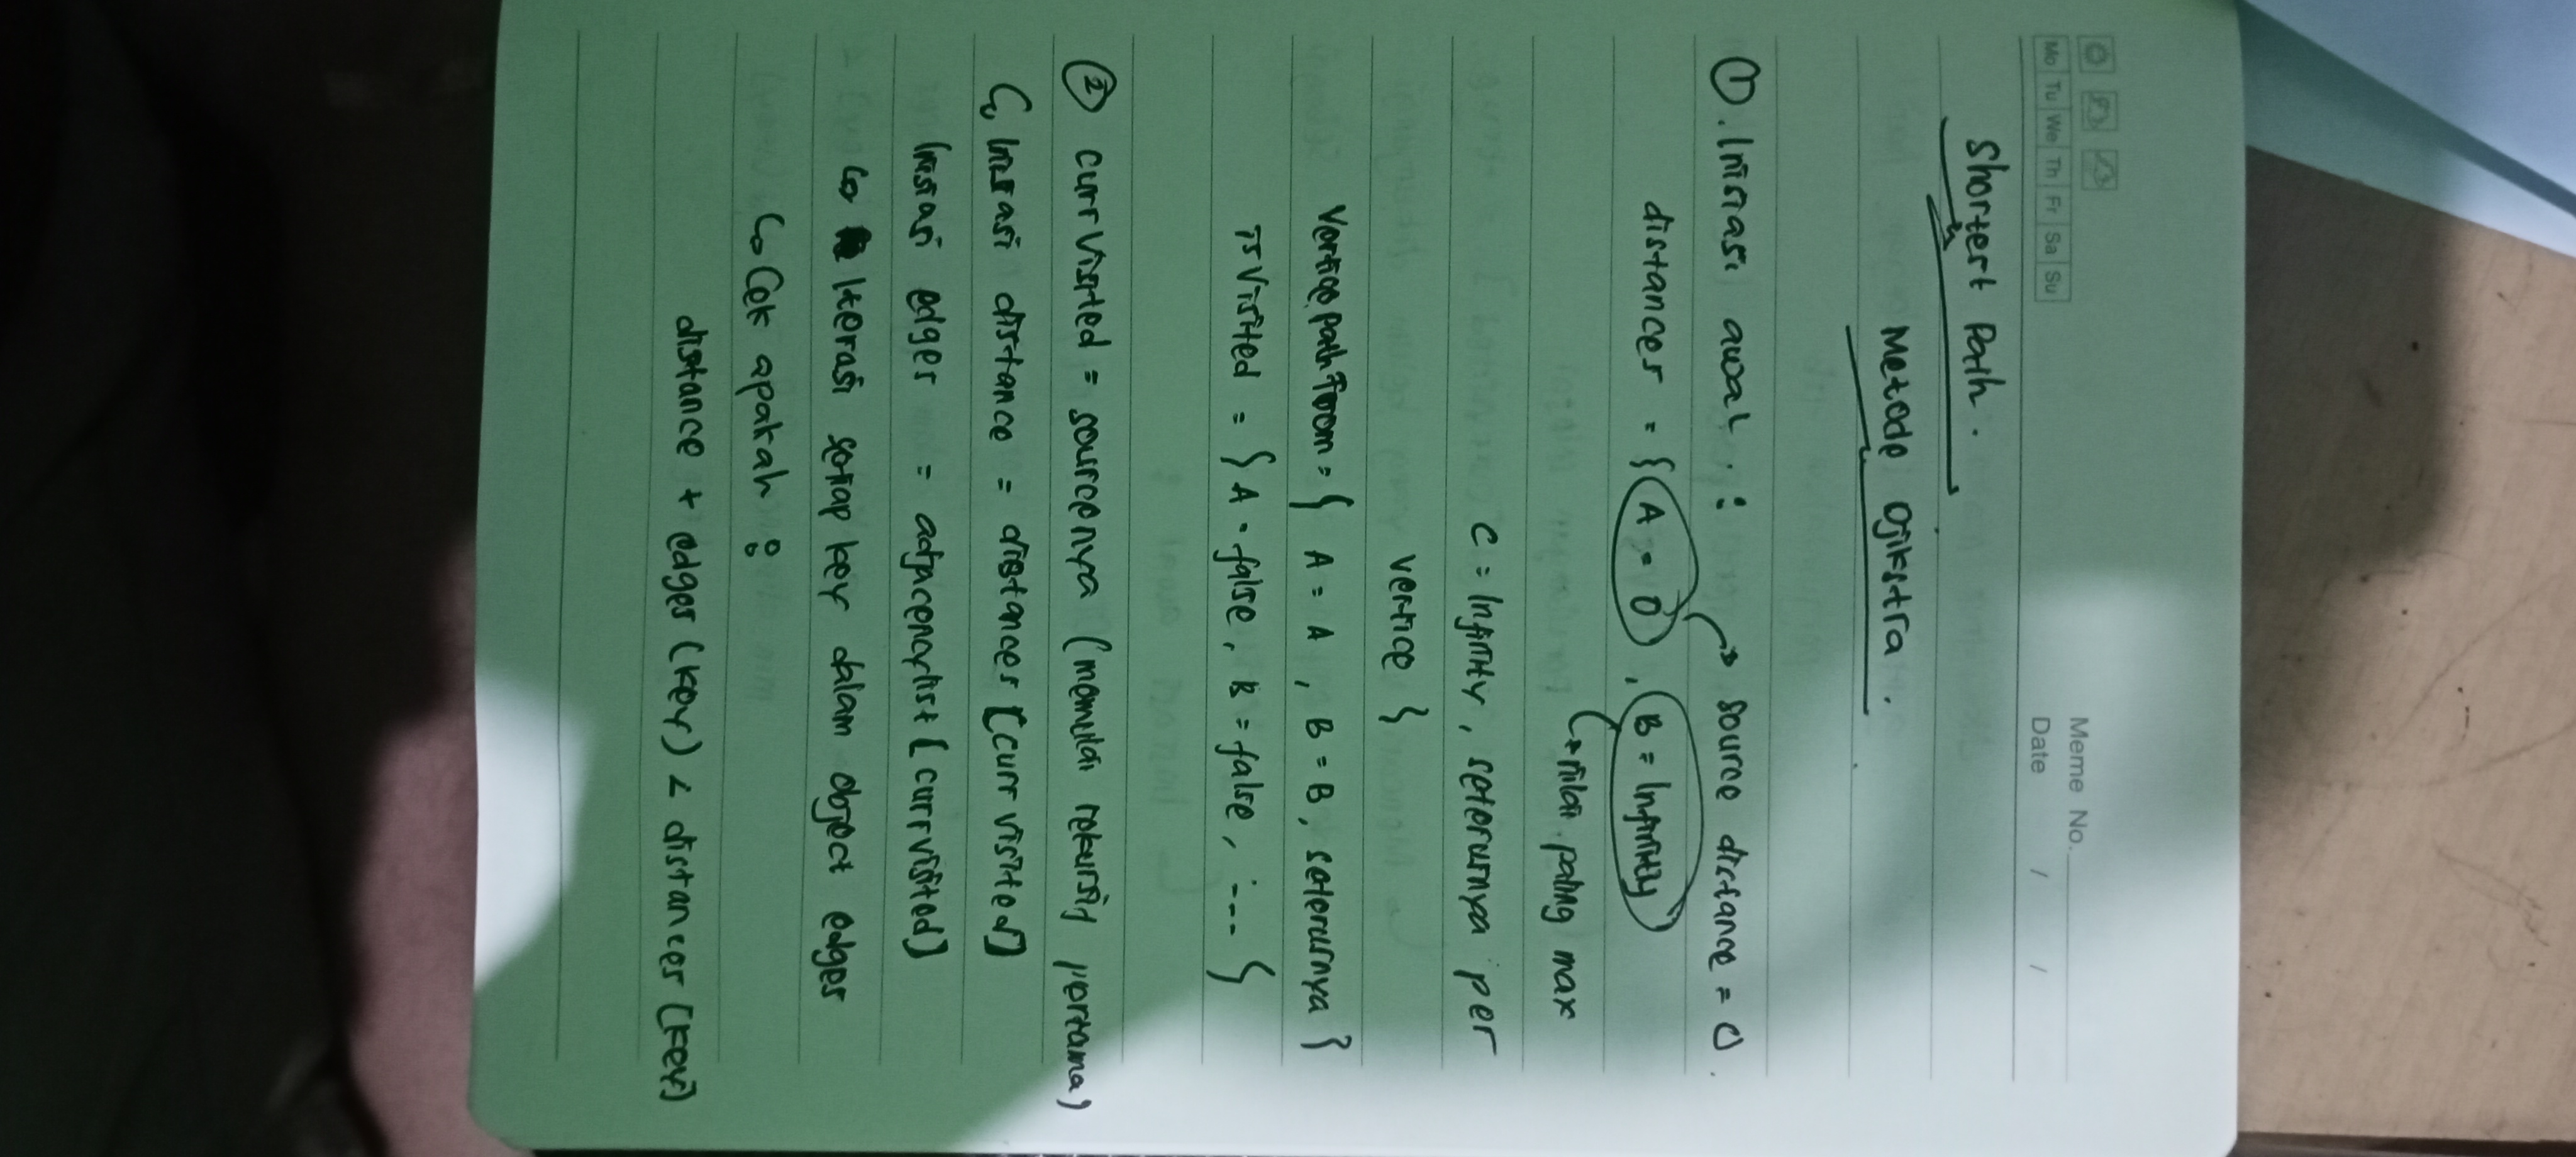 Meme No.
Mo Tu We Th Fr Sa Su
Date / /
Shortest Path.
Metode Djikstra.
① . Inisiasi awal :
source distance = 0.
distances = { A = 0 , B = Infinity
nilai paling max
C = Infinity, seterusnya per
vertice }
Vertice path from = { A = A , B = B, seterusnya }
isVisited = { A = false, B = false, ... }
② currVisited = sourcenya (memulai rekursif pertama)
Inisiasi distance = distances [currvisited]
Inisiasi edges = adjacencylist [currvisited]
Iterasi setiap key dalam object edges
Cek apakah :
distance + edges (key) < distances [key]